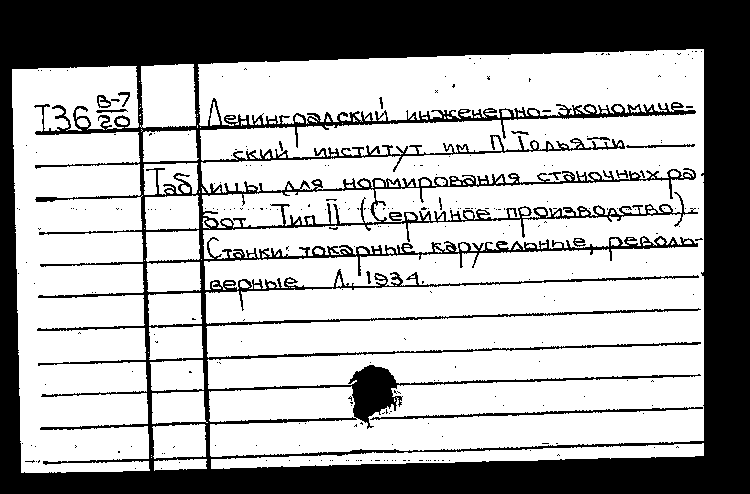 Т.36 В-7/20 Ленинградский инженерно-экономиче-
ский институт им. П. Тольятти.
Таблицы для нормирования станочных ра-
бот. Тип II (Серийное производство).
Станки: токарные, карусельные, револь-
верные. Л., 1934.